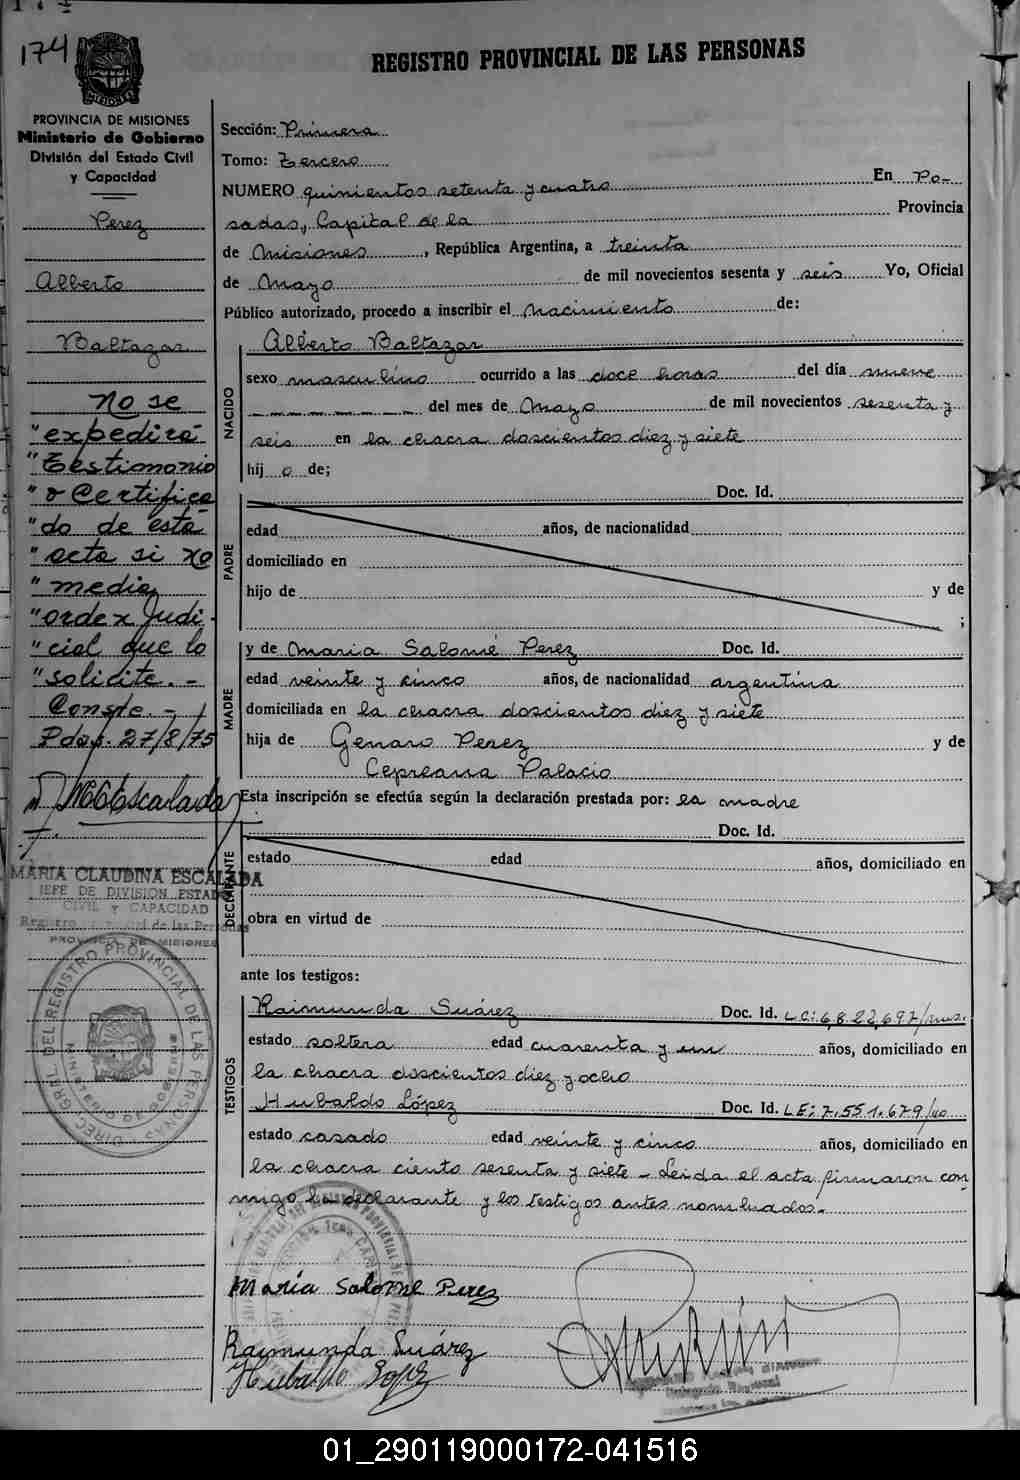 174
REGISTRO PROVINCIAL DE LAS PERSONAS
MISIONES
PROVINCIA DE MISIONES
Ministerio de Gobierno
División del Estado Civil
y Capacidad
Perez
Alberto
Baltazar
No se
"expedirá
"Testimonio
"o Certifica
"do de esta
"acta si no
"media
"orden Judi-
"cial que lo
"solicite.-
Conste.-
Pdas. 27/8/75
MCEscalada
MARIA CLAUDINA ESCALADA
JEFE DE DIVISION ESTADO
CIVIL Y CAPACIDAD
Registro Provincial de las Personas
PROVINCIA DE MISIONES
DIREC. GRAL. DEL REGISTRO PROVINCIAL DE LAS PERSONAS
Sección: Primera
Tomo: Tercero
NUMERO quinientos setenta y cuatro En Po-
sadas, Capital de la Provincia
de Misiones, República Argentina, a treinta
de Mayo de mil novecientos sesenta y seis Yo, Oficial
Público autorizado, procedo a inscribir el nacimiento de:
NACIDO
Alberto Baltazar
sexo masculino ocurrido a las doce horas del día nueve
del mes de Mayo de mil novecientos sesenta y
seis en la chacra doscientos diez y siete
hij o de;
PADRE
Doc. Id.
edad años, de nacionalidad
domiciliado en
hijo de y de
;
MADRE
y de Maria Salomé Perez Doc. Id.
edad veinte y cinco años, de nacionalidad argentina
domiciliada en la chacra doscientos diez y siete
hija de Genaro Perez y de
Cepreana Palacio
Esta inscripción se efectúa según la declaración prestada por: la madre
DECLARANTE
Doc. Id.
estado edad años, domiciliado en
obra en virtud de
ante los testigos:
TESTIGOS
Raimunda Suárez Doc. Id. LC: 6.822.697/mis.
estado soltera edad cuarenta y un años, domiciliado en
la chacra doscientos diez y ocho
Hubaldo López Doc. Id. LE: 7.551.679/
estado casado edad veinte y cinco años, domiciliado en
la chacra ciento sesenta y siete - Leida el acta firmaron con-
migo la declarante y los testigos antes nombrados.-
Maria Salome Perez
Raimunda Suárez
Hubaldo Lopez
01_290119000172-041516